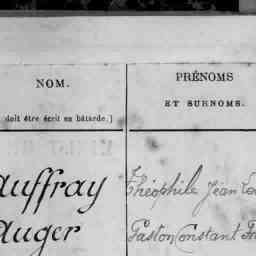 NOM.
doit être écrit en bâtarde.)
PRÉNOMS
ET SURNOMS.
auffray Théophile Jean
auger Gaston Constant